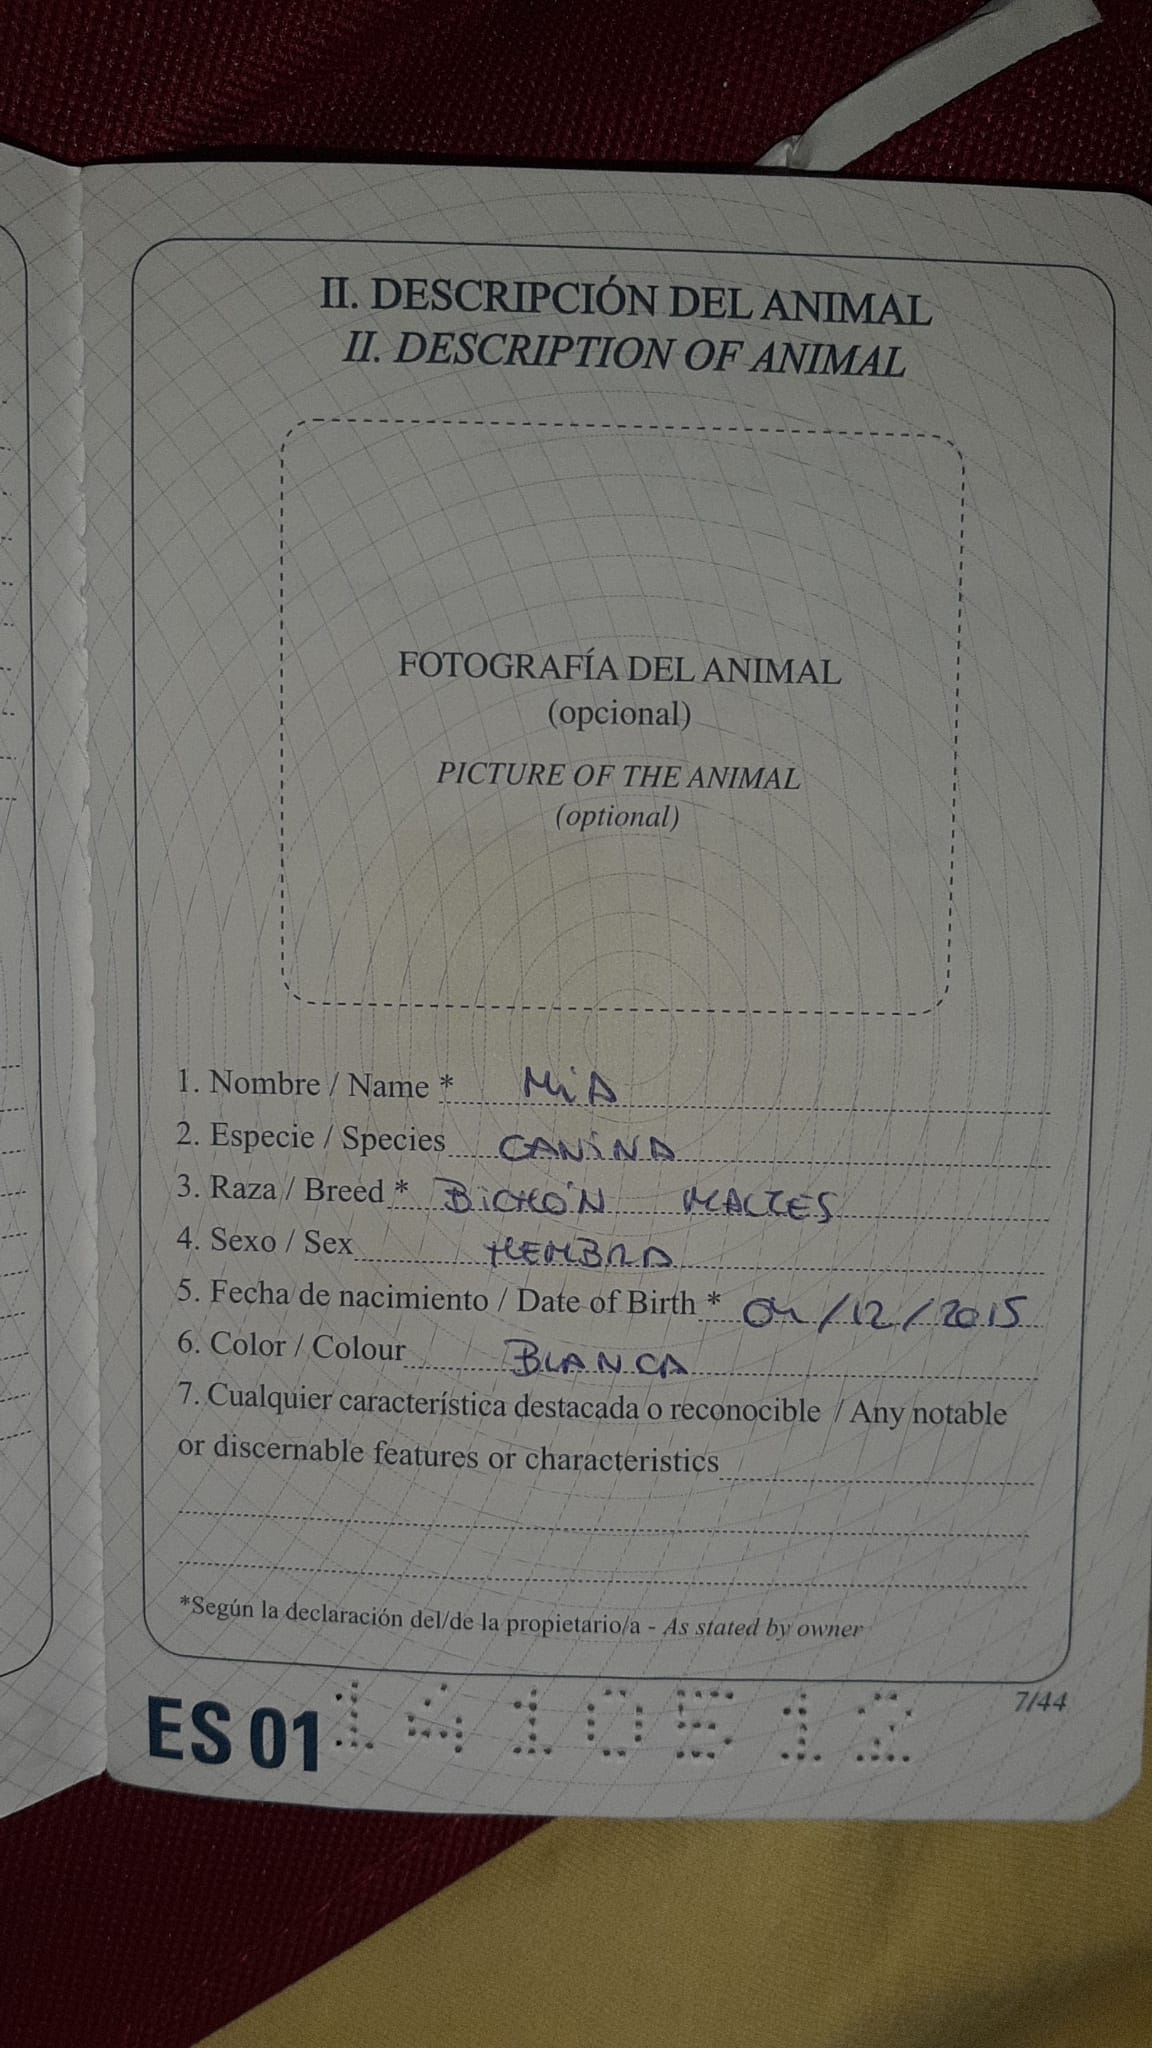 II. DESCRIPCIÓN DEL ANIMAL
II. DESCRIPTION OF ANIMAL
FOTOGRAFÍA DEL ANIMAL
(opcional)
PICTURE OF THE ANIMAL
(optional)
1. Nombre / Name * MiA
2. Especie / Species CANiNA
3. Raza / Breed * BiCHÓN MALTES
4. Sexo / Sex HEMBRA
5. Fecha de nacimiento / Date of Birth * 04/12/2015
6. Color / Colour BLANCA
7. Cualquier característica destacada o reconocible / Any notable
or discernable features or characteristics
*Según la declaración del/de la propietario/a - As stated by owner
7/44
ES 01 1410512